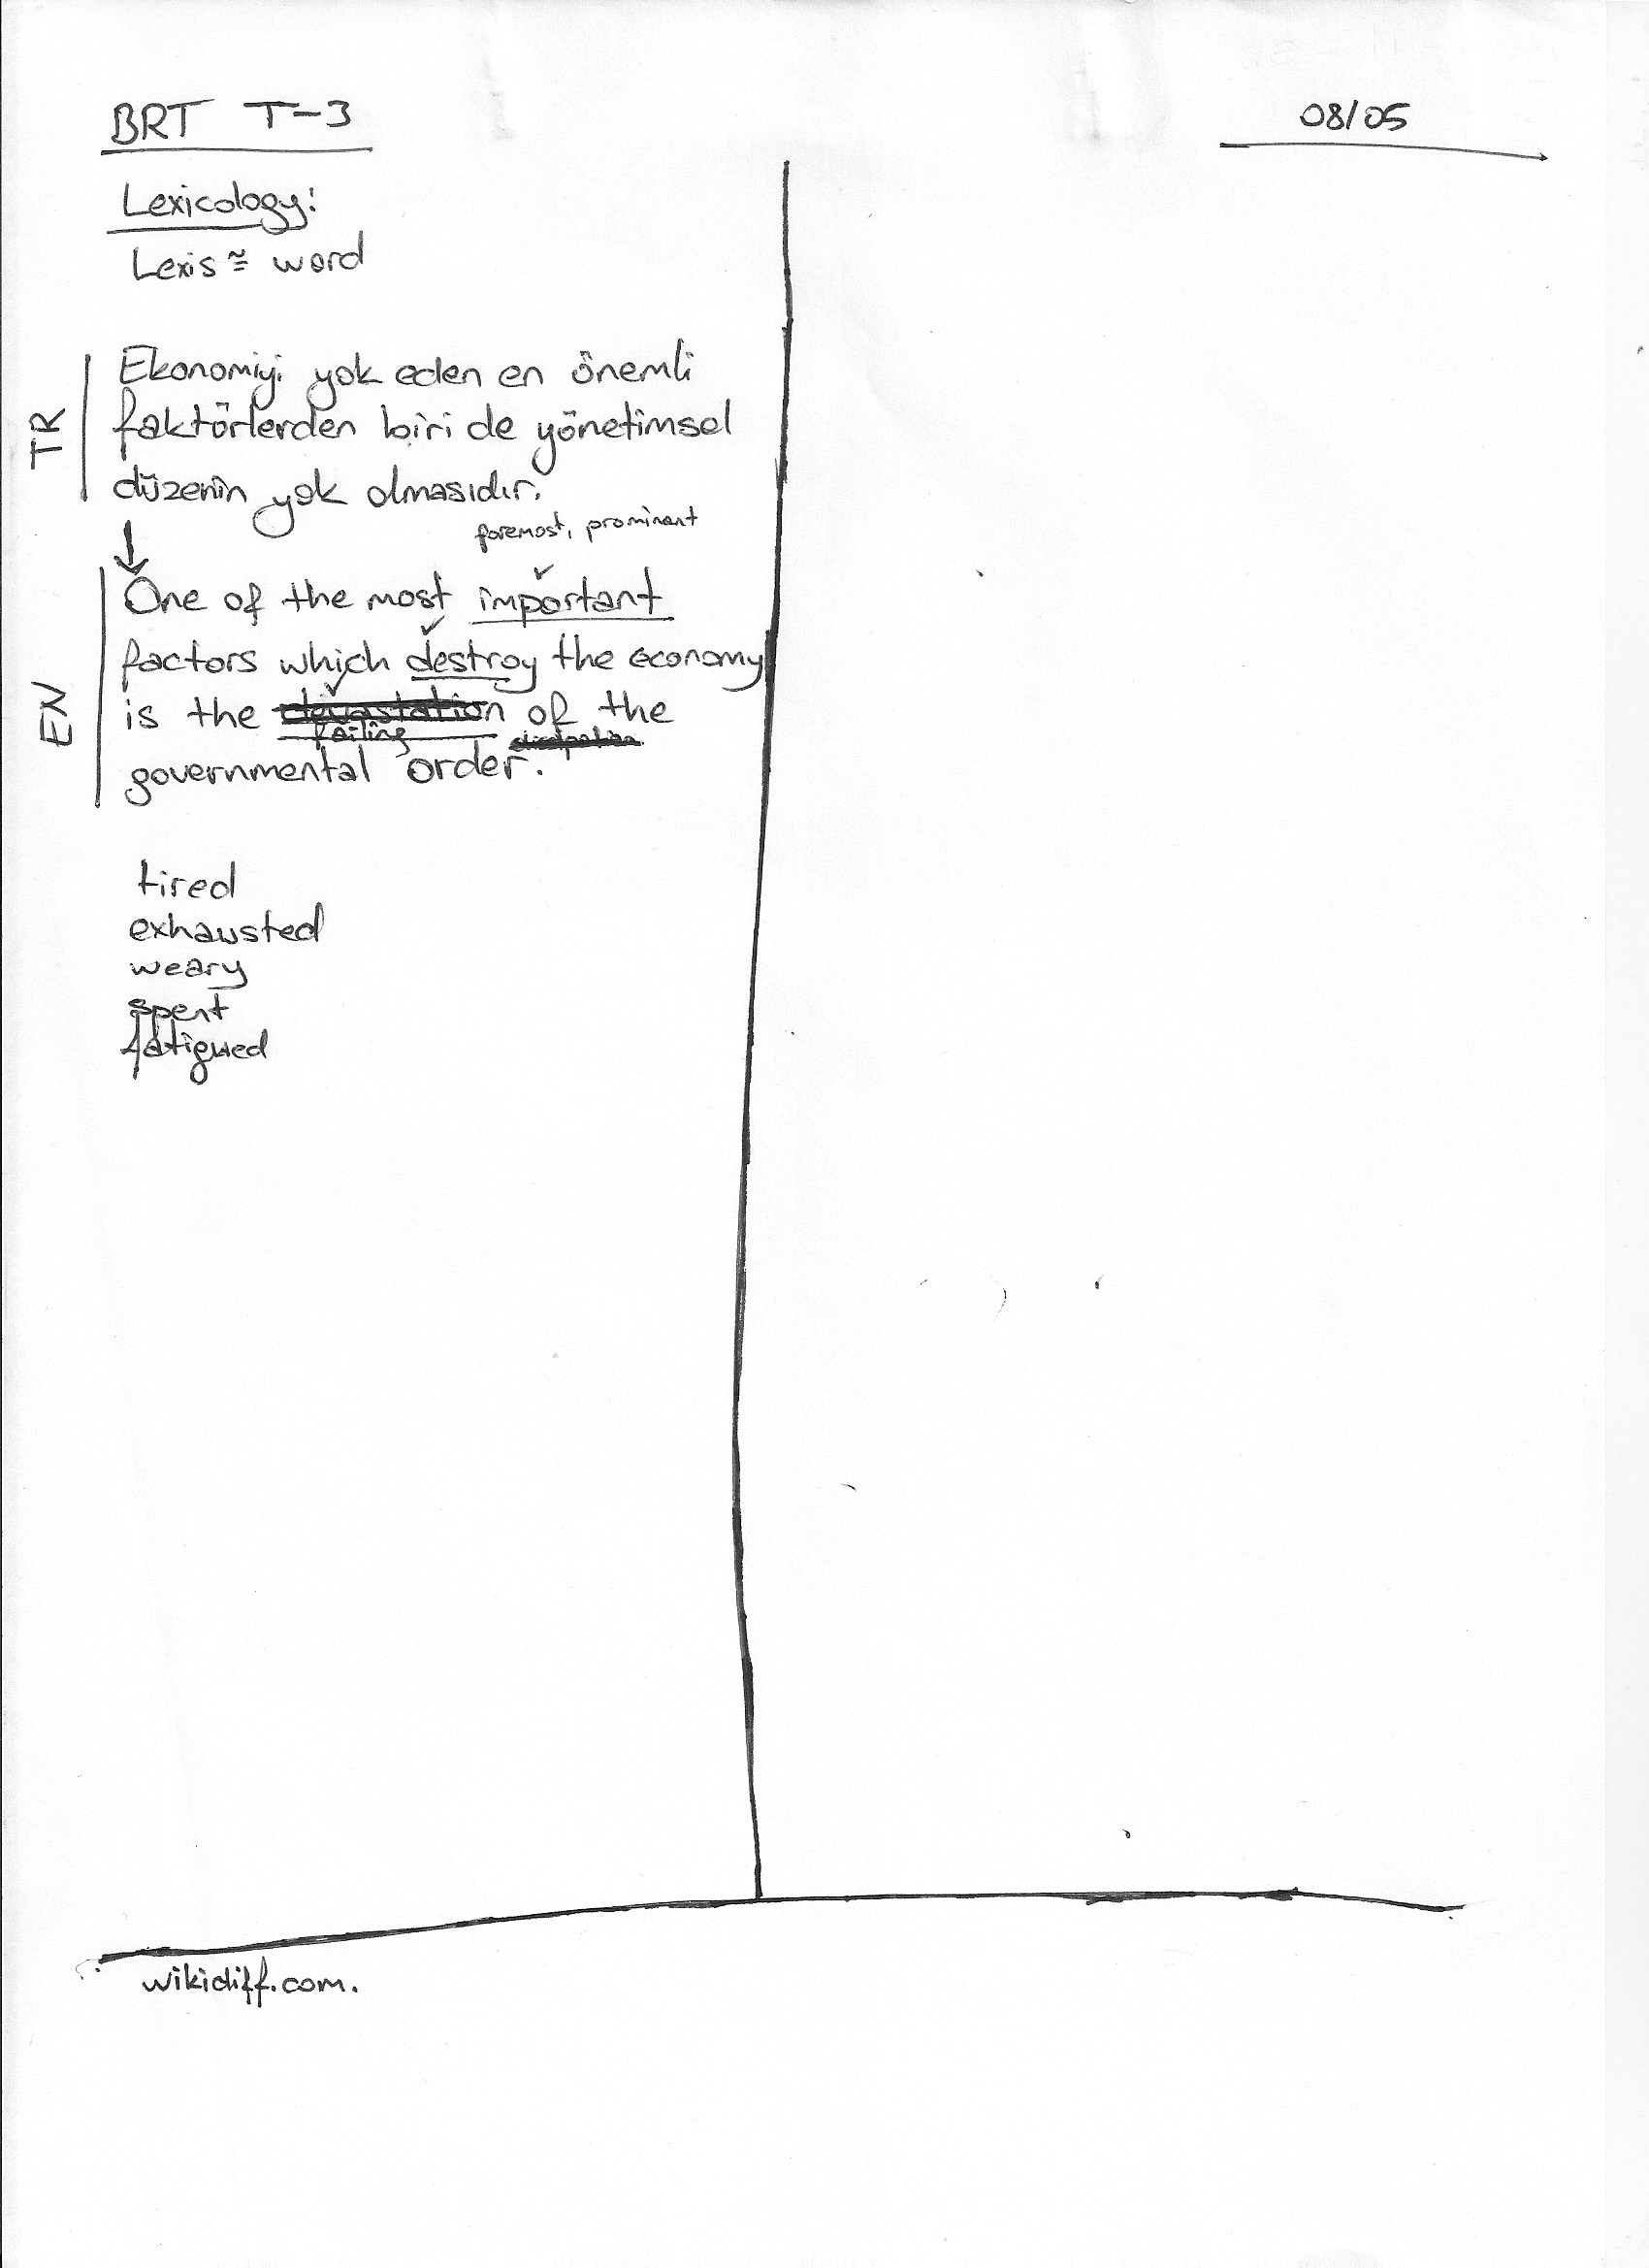 BRT T-3
08/05
Lexicology:
Lexis ≅ word
TR
Ekonomiyi yok eden en önemli
faktörlerden biri de yönetimsel
düzenin yok olmasıdır.
foremost, prominent
EN
One of the most important
factors which destroy the economy
is the devastation of the
failing
governmental order.
tired
exhausted
weary
spent
fatigued
wikidiff.com.